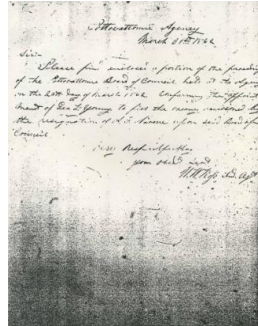 Pottowattomie Agency
March 31st 1862
Sir
Please find inclosed a portion of the proceedings
of the Pottowattomie Board of Council held at the Agency
on the 28th day of March 1862 Confirming the appoint
ment of Geo. L. Young to fill the vacancy occasioned by
the resignation of upon said Board of
Council
Very Respectfully
your obt Svt
W. W. Ross Ind. Agt